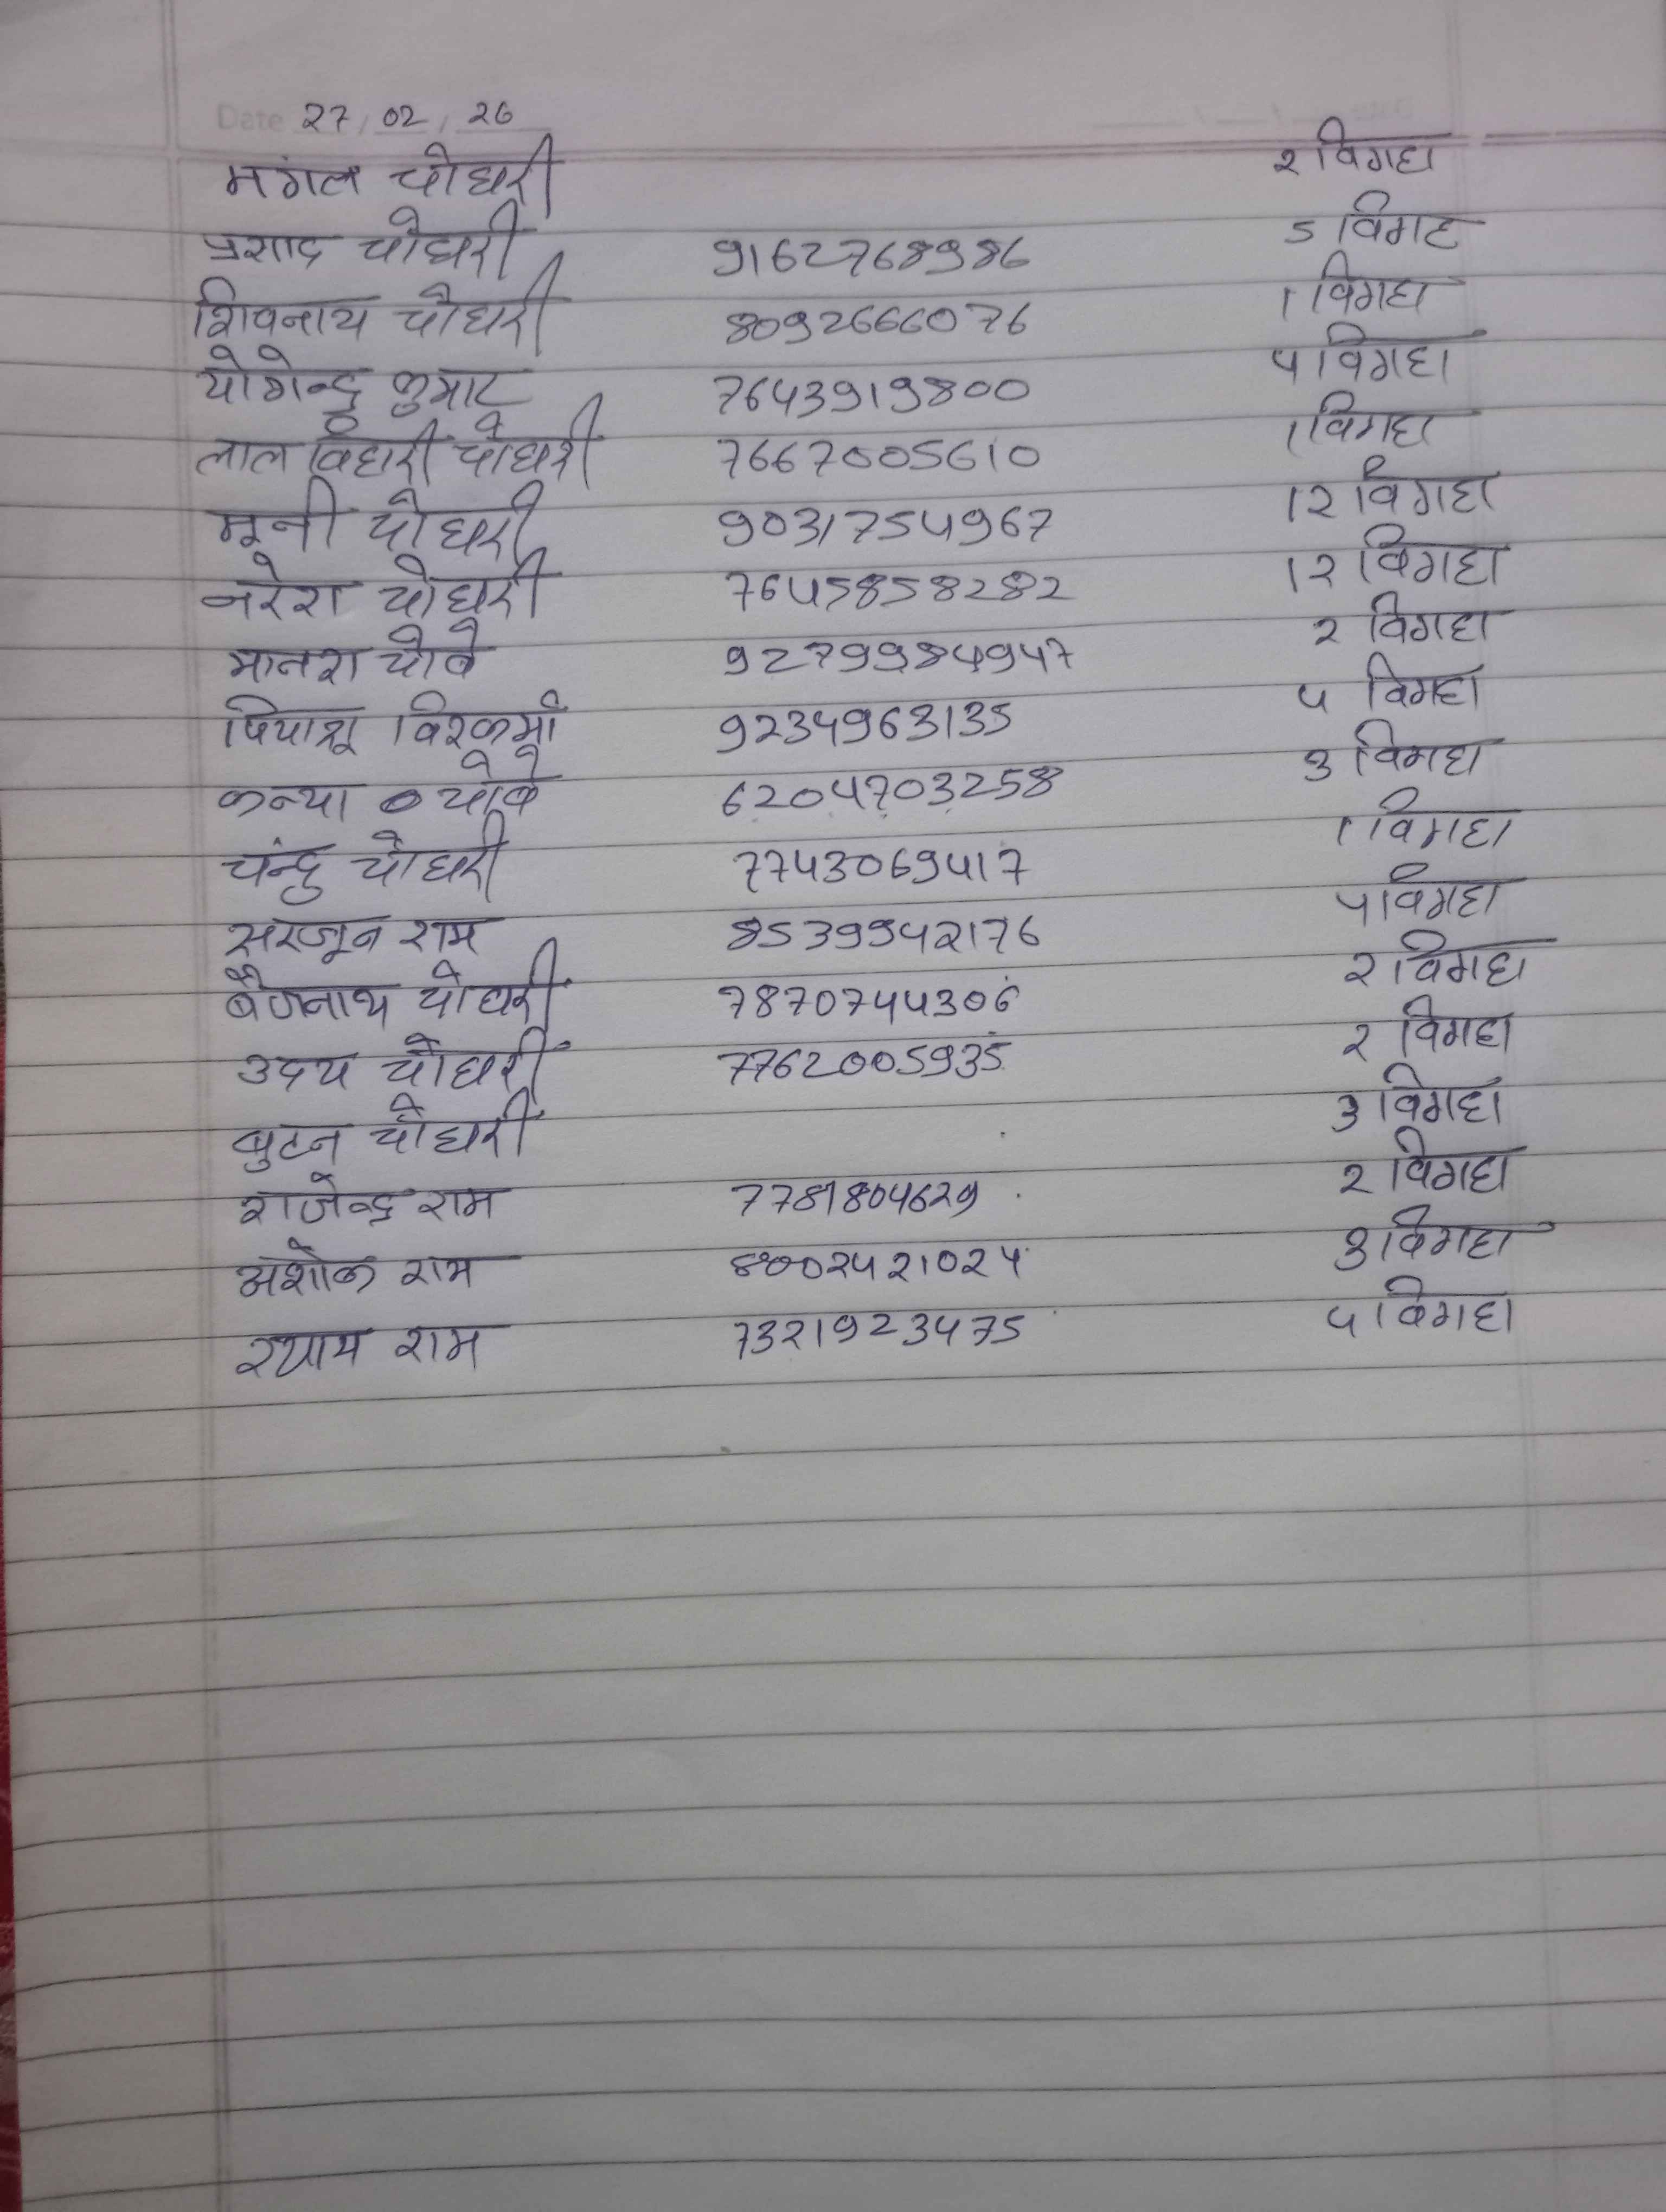 Date 27/02/26
मंगल चौधरी 2 विगहा
प्रशाद चौधरी 9162768986 5 विगह
शिवनाथ चौधरी 8092666076 1 विगहा
योगेन्द्र कुमार 7643919800 4 विगहा
लाल विहारी चौधरी 7667005610 1 विगहा
मूनी चौधरी 9031754967 12 विगहा
नरेश चौधरी 7645858282 12 विगहा
चौवे 9279984947 2 विगहा
9234963135 4 विगहा
कन्या चौवे 6204703258 3 विगहा
चंन्द्र चौधरी 7743069417 1 विगहा
सरजून राम 8539942176 4 विगहा
बैजनाथ चौधरी 7870744306 2 विगहा
उदय चौधरी 7762005935 2 विगहा
बुटन चौधरी 3 विगहा
राजेन्द्र राम 7781804629 2 विगहा
अशोक राम 3 विगहा
श्याम राम 7321923475 4 विगहा